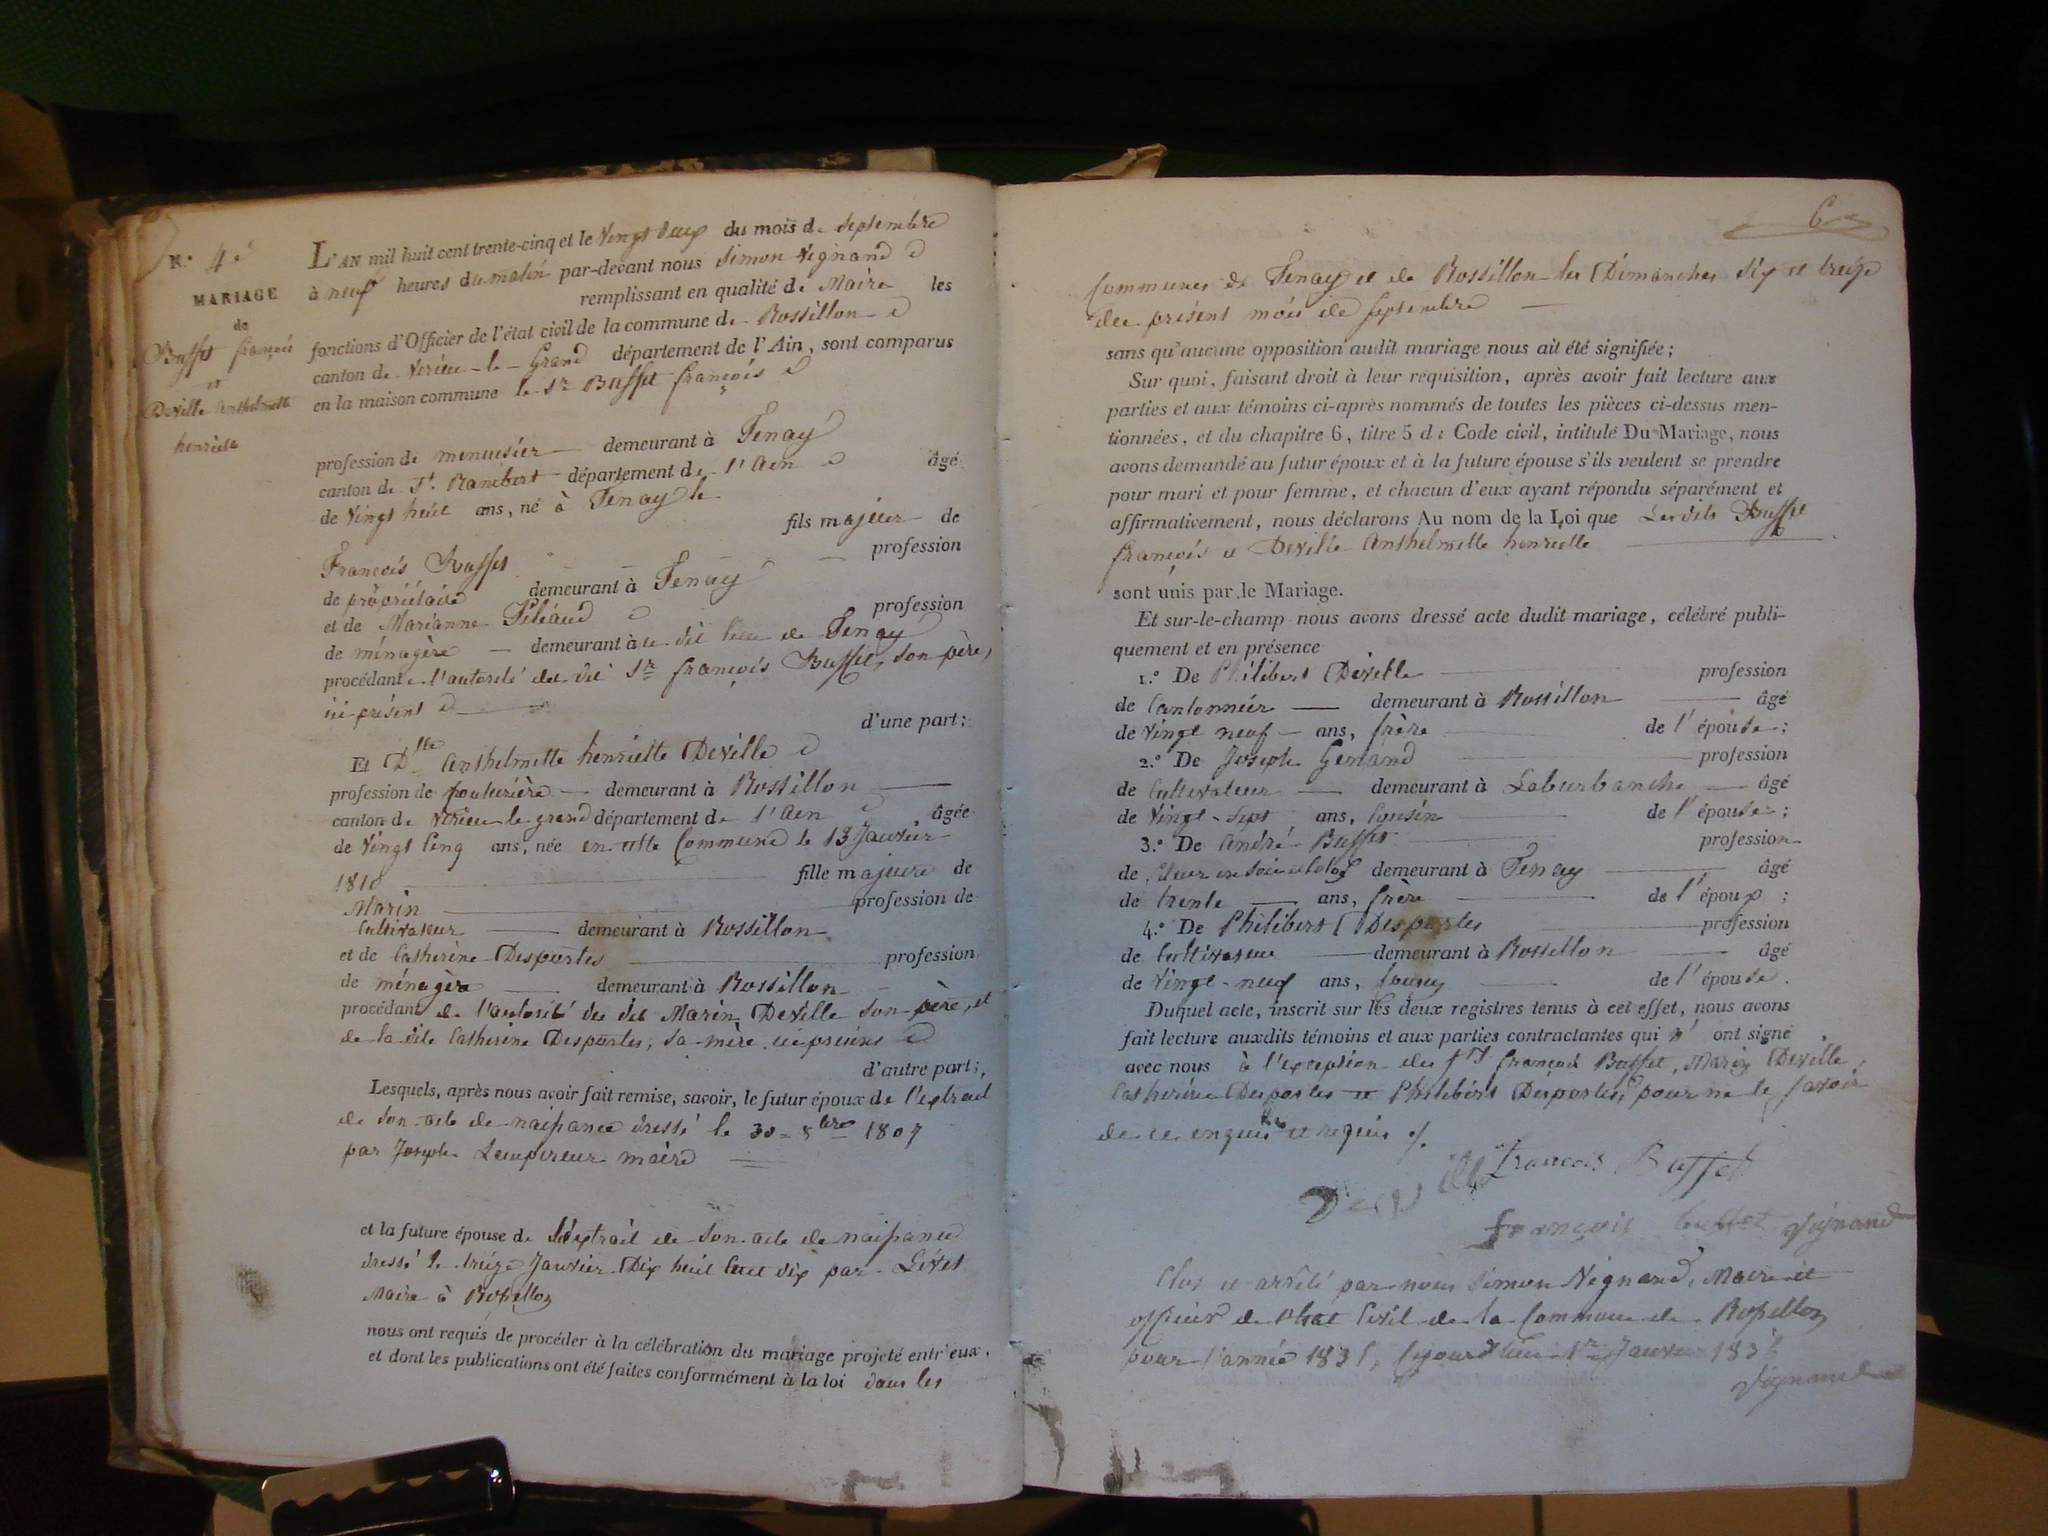 N.° 4e
MARIAGE
de
Buffet françois
et
Deville anthelmette
henriette
L'AN mil huit cent trente-cinq et le vingt deux du mois de septembre
à neuf heures du matin par-devant nous Simon Vignand
remplissant en qualité de Maire les
fonctions d'Officier de l'état civil de la commune de Rossillon
canton de Virieu-le-Grand département de l'Ain, sont comparus
en la maison commune le Sr Buffet françois
profession de menuisier demeurant à Tenay
canton de St. Rambert département de l'Ain âgé
de vingt huit ans, né à Tenay le
fils majeur de
François Buffet profession
de propriétaire demeurant à Tenay
et de Marianne profession
de ménagère demeurant à u dit lieu de Tenay
procédant de l'autorité du dit Sr françois Buffet, son père,
ici présent
d'une part;
Et Dlle anthelmette henriette Deville
profession de demeurant à Rossillon
canton de Virieu le grand département de l'Ain âgée
de vingt cinq ans, née en cette Commune le 13 Janvier
1810 fille majeure de
Marin profession de
Cultivateur demeurant à Rossillon
et de Catherine Desportes profession
de ménagère demeurant à Rossillon
procédant de l'autorité du dit Marin Deville son père, et
de la dite Catherine Desportes, sa mère, ici présens
d'autre part;
Lesquels, après nous avoir fait remise, savoir, le futur époux de l'extrait
de son acte de naissance dressé le 30 8bre 1807
par Joseph Lempereur maire
et la future épouse de l'extrait de son acte de naissance
dressé le treize Janvier Dix huit Cent dix par Livet
Maire à Rossillon
nous ont requis de procéder à la célébration du mariage projeté entr'eux,
et dont les publications ont été faites conformément à la loi dans les
6
Communes de Tenay et de Rossillon les Dimanches six et treize
du présent mois de septembre
sans qu'aucune opposition audit mariage nous ait été signifiée;
Sur quoi, faisant droit à leur réquisition, après avoir fait lecture aux
parties et aux témoins ci-après nommés de toutes les pièces ci-dessus men-
tionnées, et du chapitre 6, titre 5 du Code civil, intitulé Du Mariage, nous
avons demandé au futur époux et à la future épouse s'ils veulent se prendre
pour mari et pour femme, et chacun d'eux ayant répondu séparément et
affirmativement, nous déclarons Au nom de la Loi que Lesdits Buffet
françois et Deville anthelmette henriette
sont unis par le Mariage.
Et sur-le-champ nous avons dressé acte dudit mariage, célébré publi-
quement et en présence
1.° De Philibert Deville profession
de Cantonnier demeurant à Rossillon âgé
de vingt neuf ans, frère de l'épouse;
2.° De Joseph Genand profession
de Cultivateur demeurant à Laburbanche âgé
de vingt-sept ans, Cousin de l'épouse;
3.° De andré Buffet profession
de demeurant à Tenay âgé
de trente ans, frère de l'époux;
4.° De Philibert Desportes profession
de Cultivateur demeurant à Rossillon âgé
de vingt-neuf ans, de l'épouse.
Duquel acte, inscrit sur les deux registres tenus à cet effet, nous avons
fait lecture auxdits témoins et aux parties contractantes qui n' ont signé
avec nous à l'exception des françois Buffet, Marin Deville,
Catherine Desportes et Philibert Desportes, pour ne le savoir
de ce enquis et requis ./.
Deville François Buffet
françois buffet Vignand
Clos et arrêté par nous Simon Vignand, Maire et
officier de l'état Civil de la Commune de Rossillon
pour l'année 1835, Cejourd'hui 1er Janvier 1836
Vignand